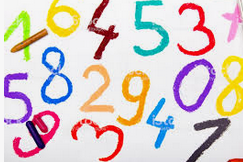 1 6 4 5 3
5 8 29 0 8
9 3 4 7